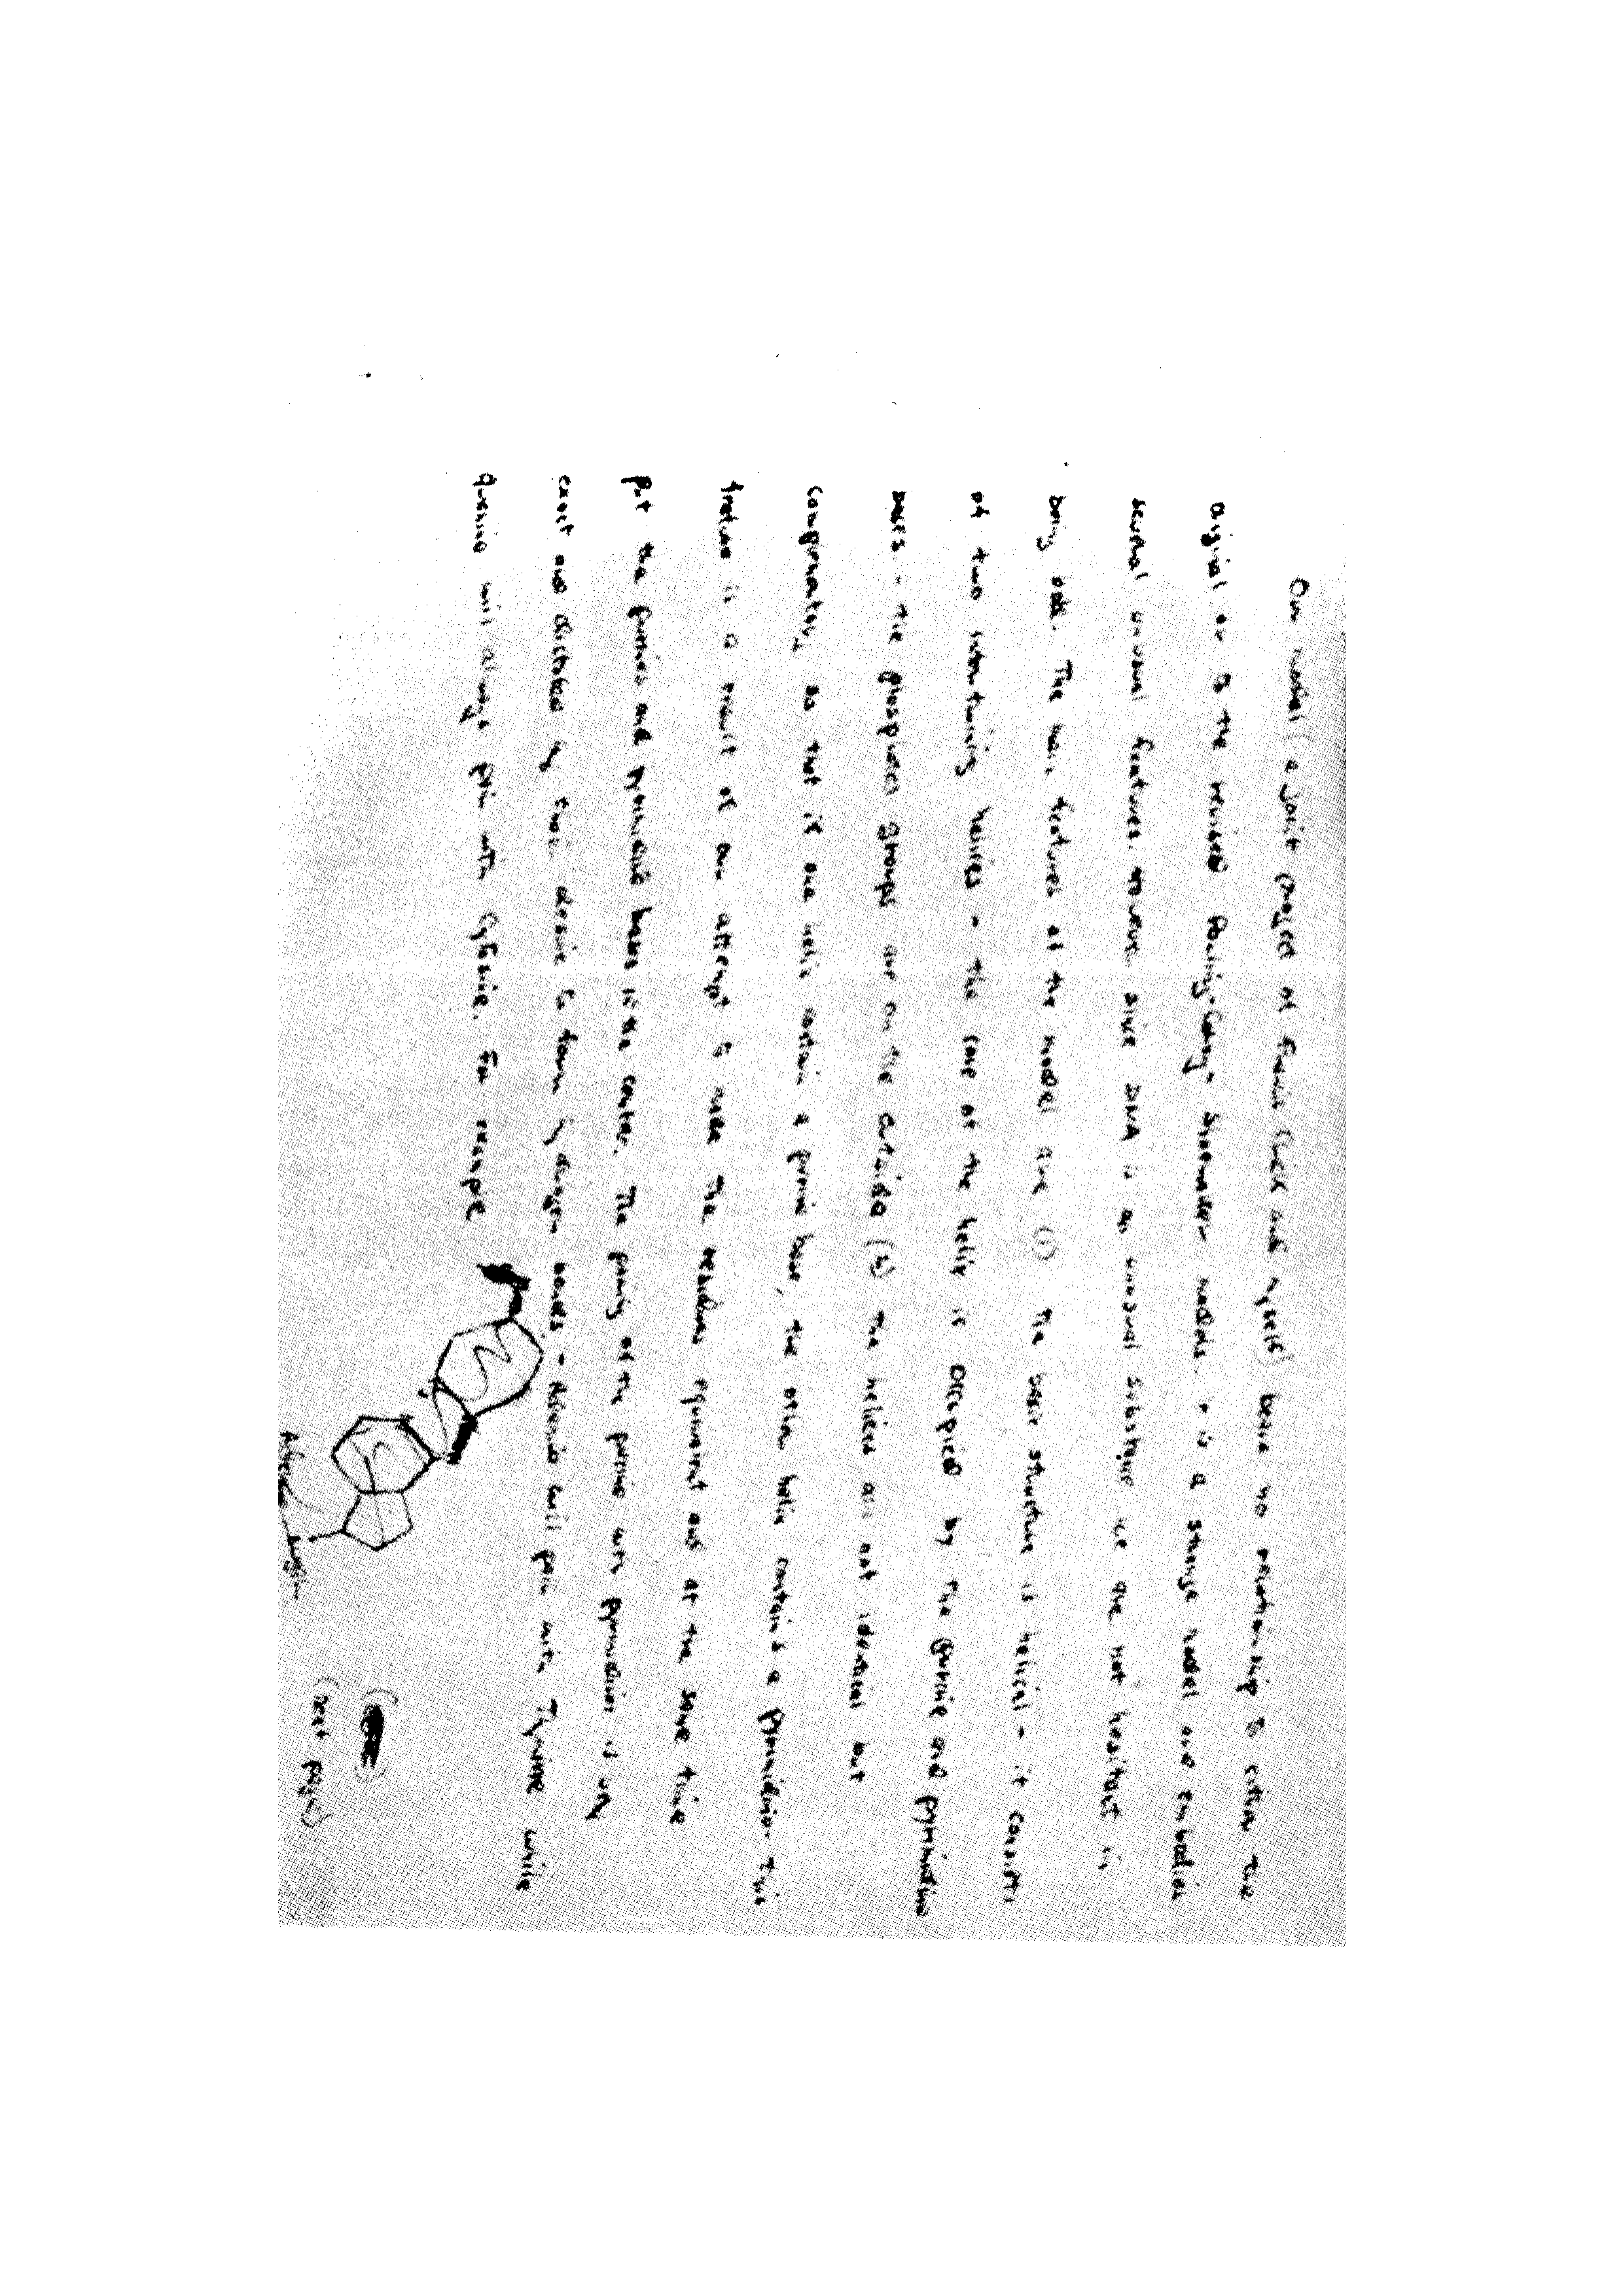 Our model (a joint project of Francis Crick and myself) bears no relationship to either the
original or to the revised Pauling-Corey-Shoemaker models. It is a strange model and embodies
several unusual features. However since DNA is an unusual substance we are not hesitant in
being bold. The main features of the model are (1) The basic structure is helical - it consists
of two intertwining helices - the core of the helix is occupied by the purine and pyrimidine
bases - the phosphates groups are on the outside (2) The helices are not identical but
complementary so that if one helix contains a purine base, the other helix contains a pyrimidine. This
feature is a result of our attempt to make the residues equivalent and at the same time
put the purines and pyrimidine bases in the center. The pairing of the purine with pyrimidines is very
exact and dictated by their desire to form hydrogen bonds - Adenine will pair with Thymine while
guanine will always pair with Cytosine. For example
(next page)
Adenine